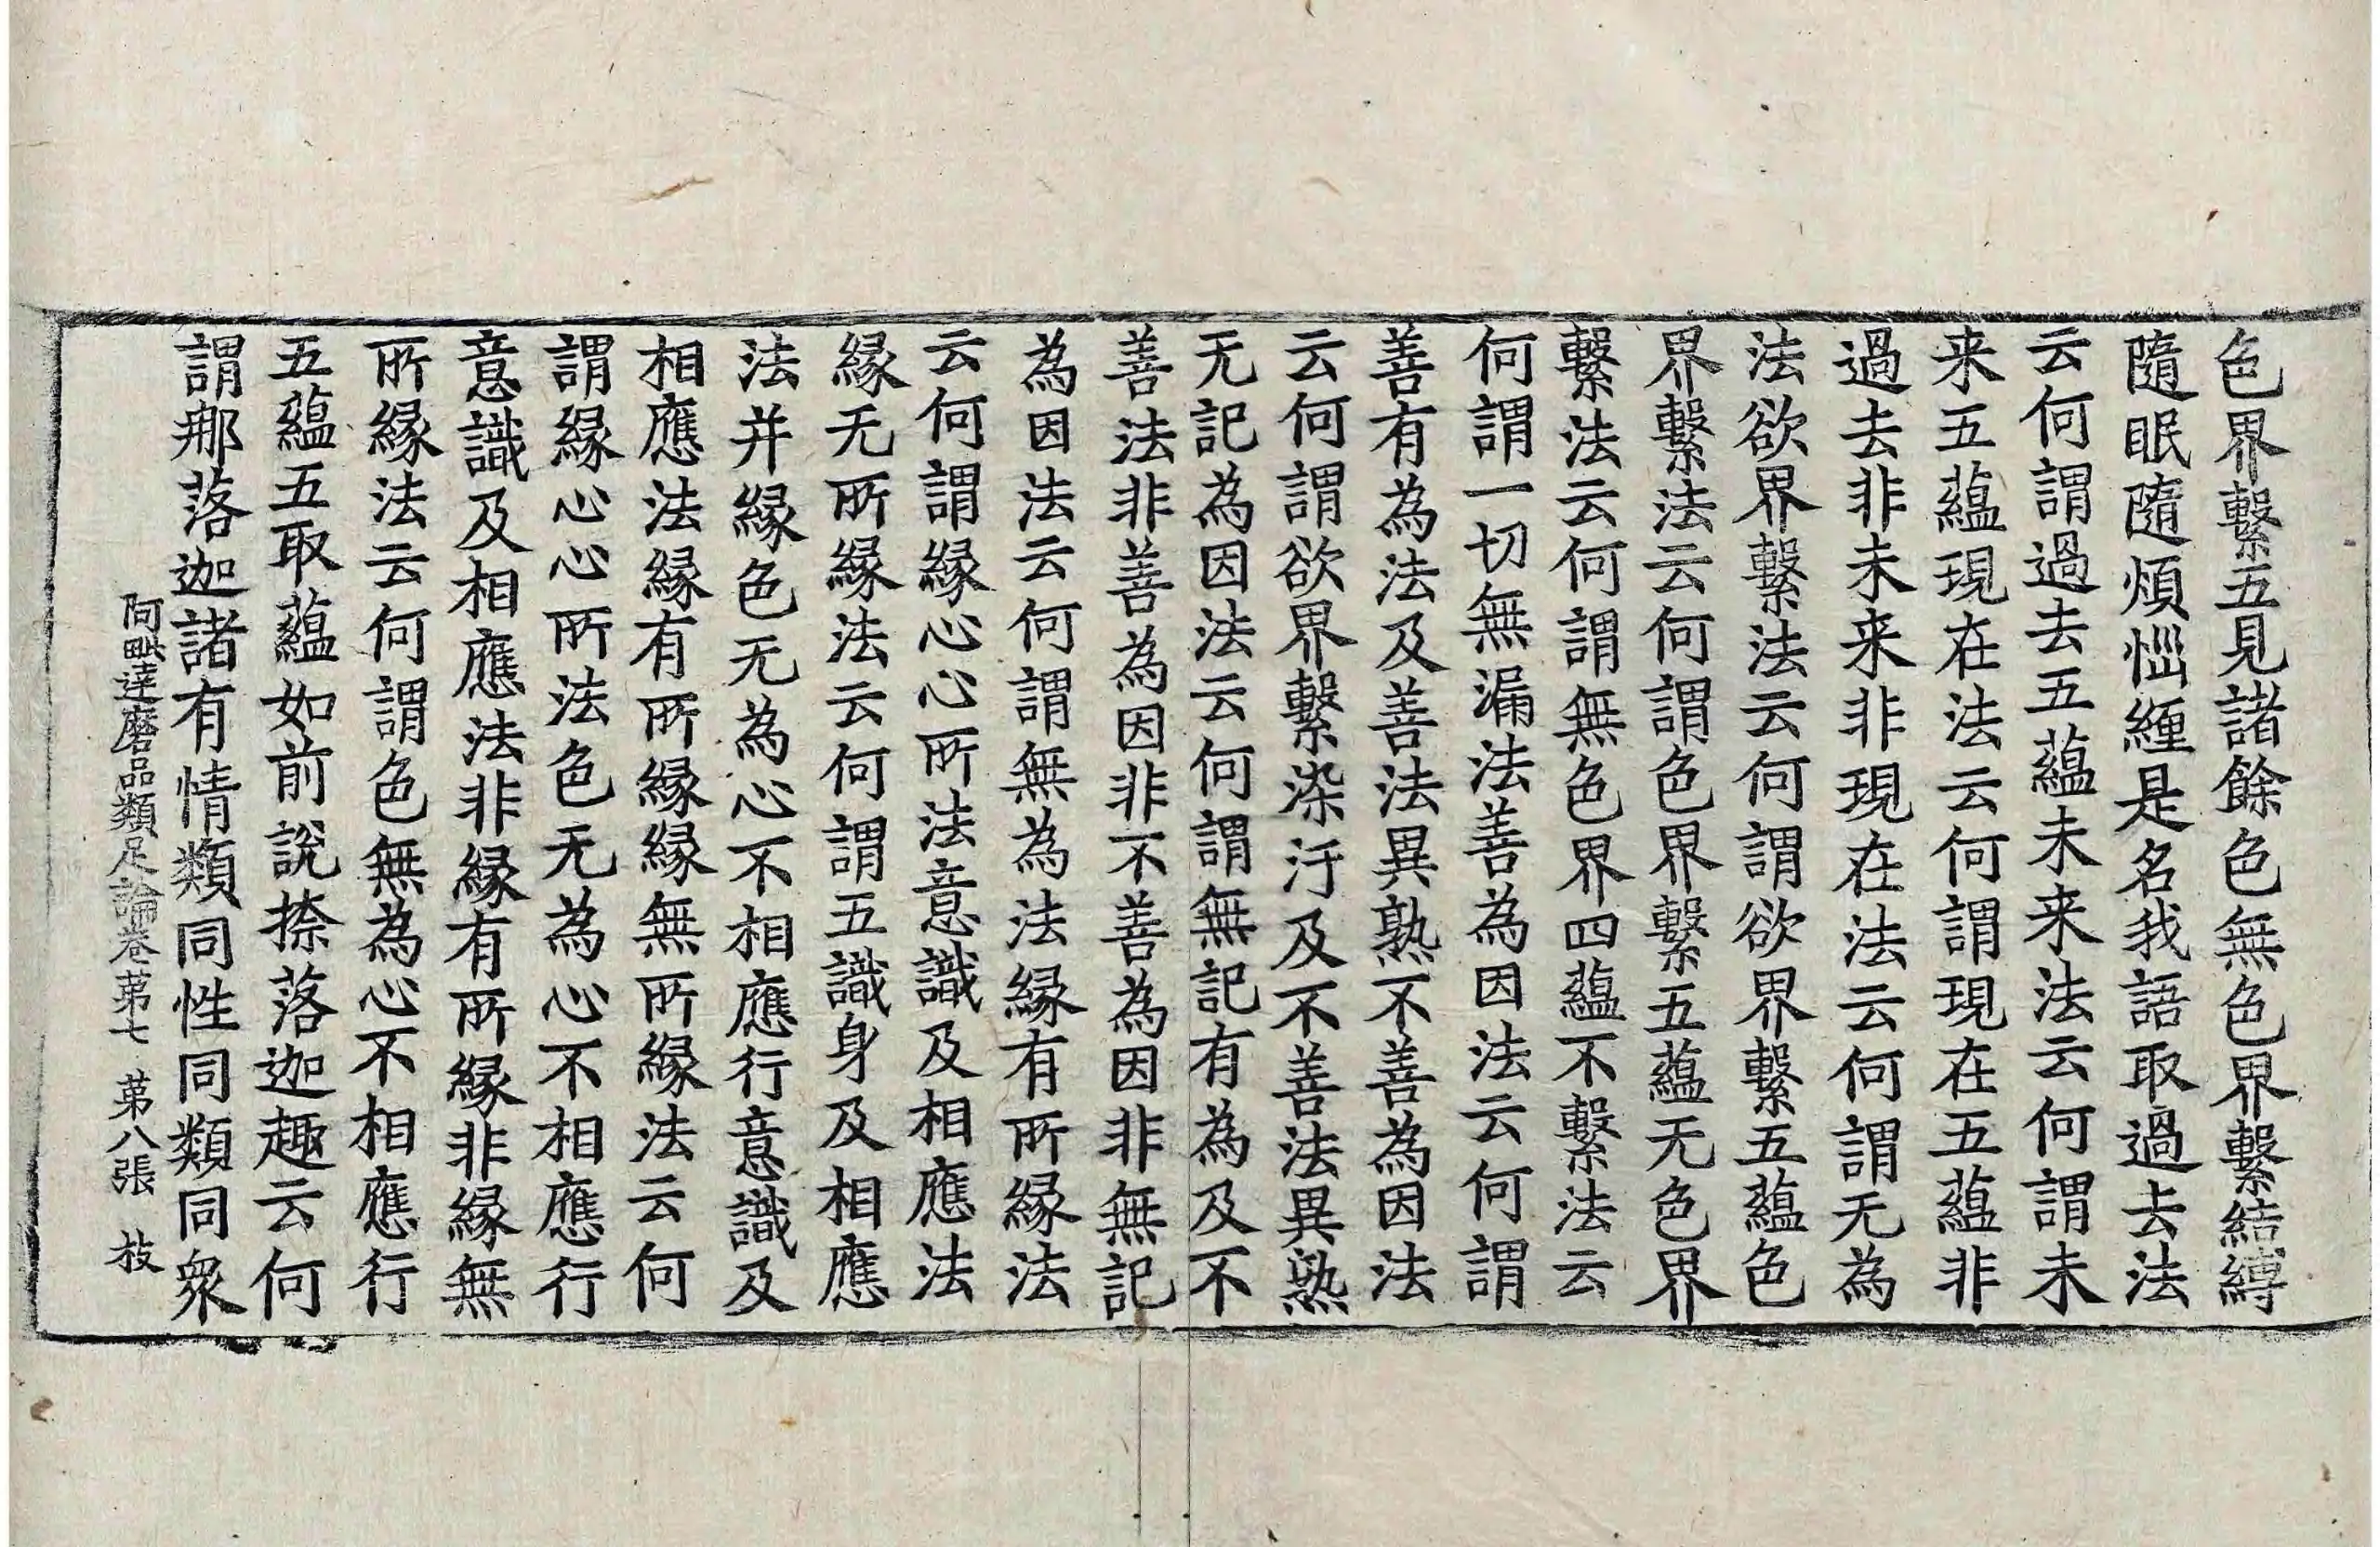 色界繫五見諸餘色無色界繫結縛
隨眠隨煩惱纏是名我語取過去法
云何謂過去五蘊未来法云何謂未
来五蘊現在法云何謂現在五蘊非
過去非未来非現在法云何謂无為
法欲界繫法云何謂欲界繫五蘊色
界繫法云何謂色界繫五蘊无色界
繫法云何謂無色界四蘊不繫法云
何謂一切無漏法善為因法云何謂
善有為法及善法異熟不善為因法
云何謂欲界繫染汙及不善法異熟
无記為因法云何謂無記有為及不
善法非善為因非不善為因非無記
為因法云何謂無為法緣有所緣法
云何謂緣心心所法意識及相應法
緣无所緣法云何謂五識身及相應
法并緣色无為心不相應行意識及
相應法緣有所緣緣無所緣法云何
謂緣心心所法色无為心不相應行
意識及相應法非緣有所緣非緣無
所緣法云何謂色無為心不相應行
五蘊五取蘊如前說捺落迦趣云何
謂那落迦諸有情類同性同類同衆
阿毗達磨品類足論卷苐七 苐八張 枝